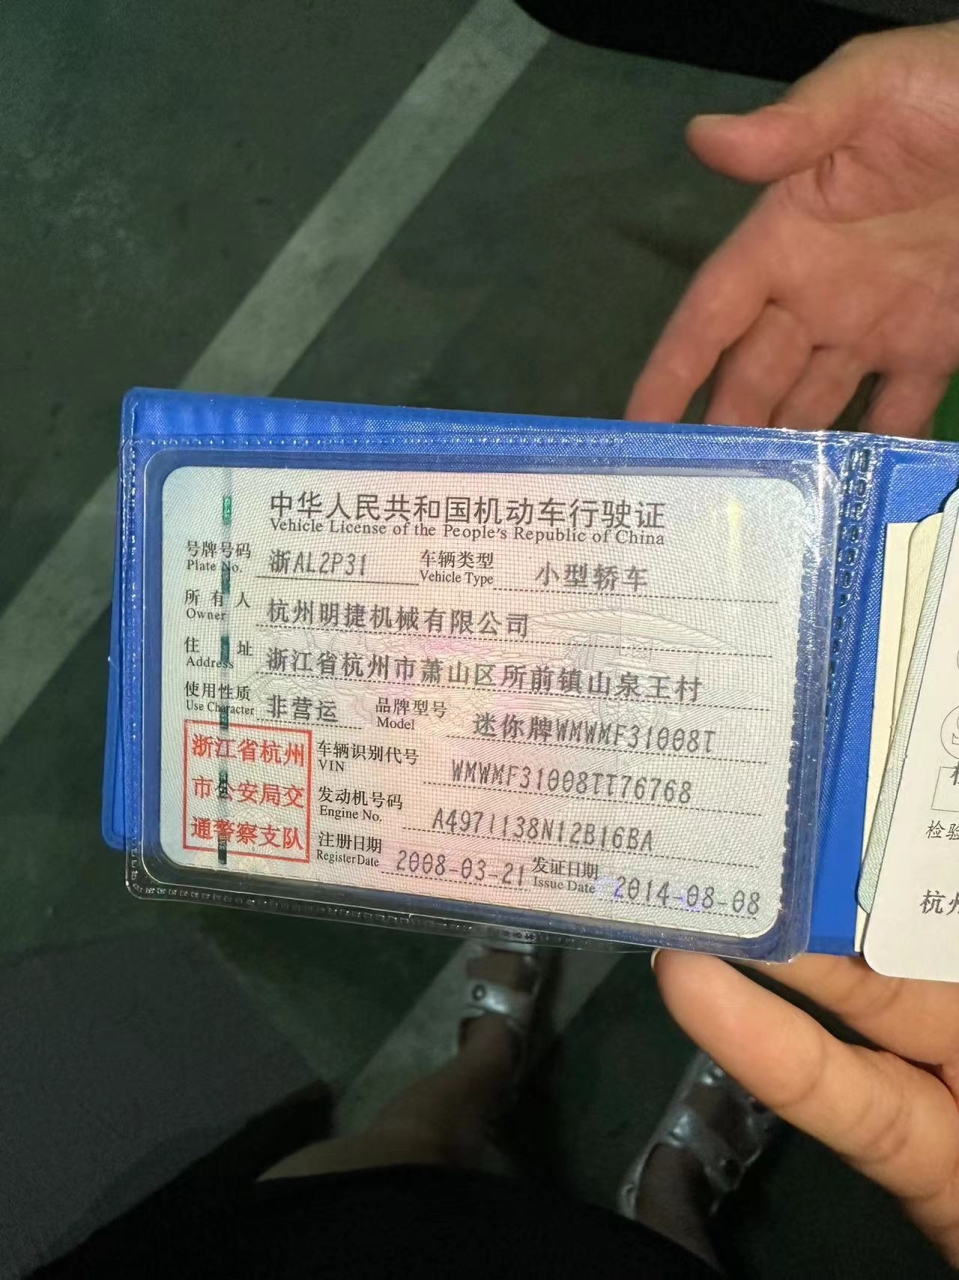 中华人民共和国机动车行驶证
Vehicle License of the People's Republic of China
号牌号码 浙AL2P31 车辆类型 小型轿车
Plate No. Vehicle Type
所有人 杭州明捷机械有限公司
Owner
住址 浙江省杭州市萧山区所前镇山泉王村
Address
使用性质 非营运 品牌型号 迷你牌WMWMF31008T
Use Character Model
浙江省杭州
市公安局交
通警察支队
车辆识别代号 WMWMF31008TT76768
VIN
发动机号码 A4971138N12B16BA
Engine No.
注册日期 2008-03-21 发证日期 2014-08-08
Register Date Issue Date
检验
杭州